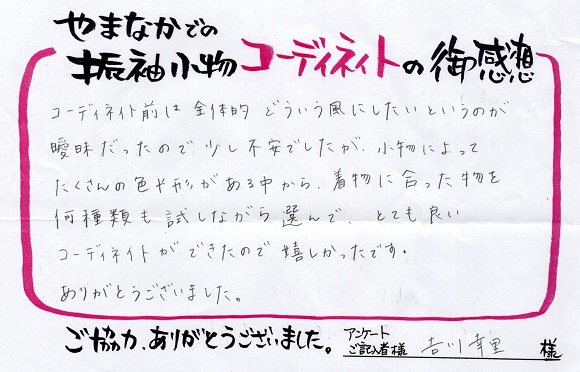 やまなかでの
振袖小物コーディネイトの御感想
コーディネイト前は 全体的 どういう風にしたいというのが
曖昧だったので 少し不安でしたが、小物によって
たくさんの色や形がある中から、着物に合った物を
何種類も試しながら 選んで、とても良い
コーディネイトができたので 嬉しかったです。
ありがとうございました。
ご協力、ありがとうございました。
アンケート
ご記入者様 吉川幸里 様